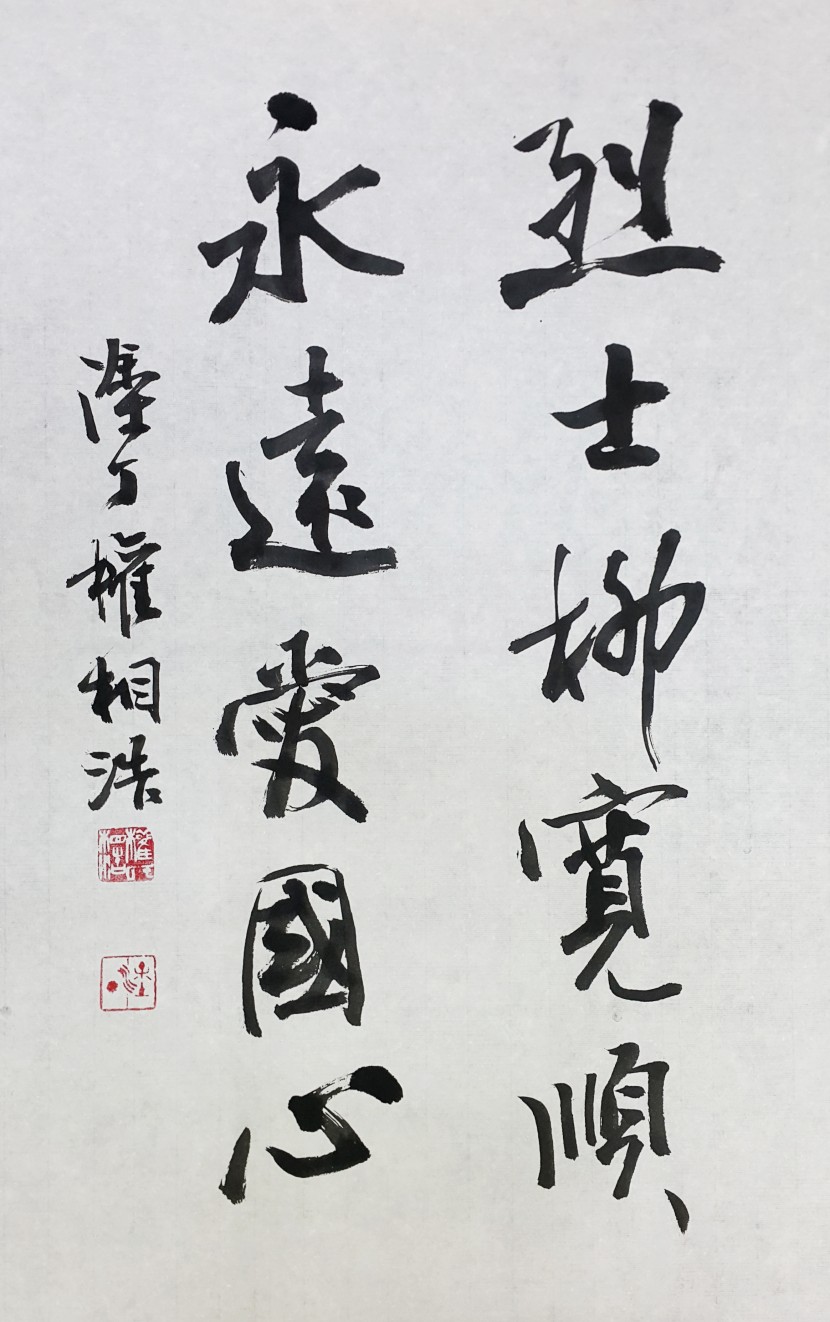 烈士柳寬順
永遠愛國心
丁權相浩